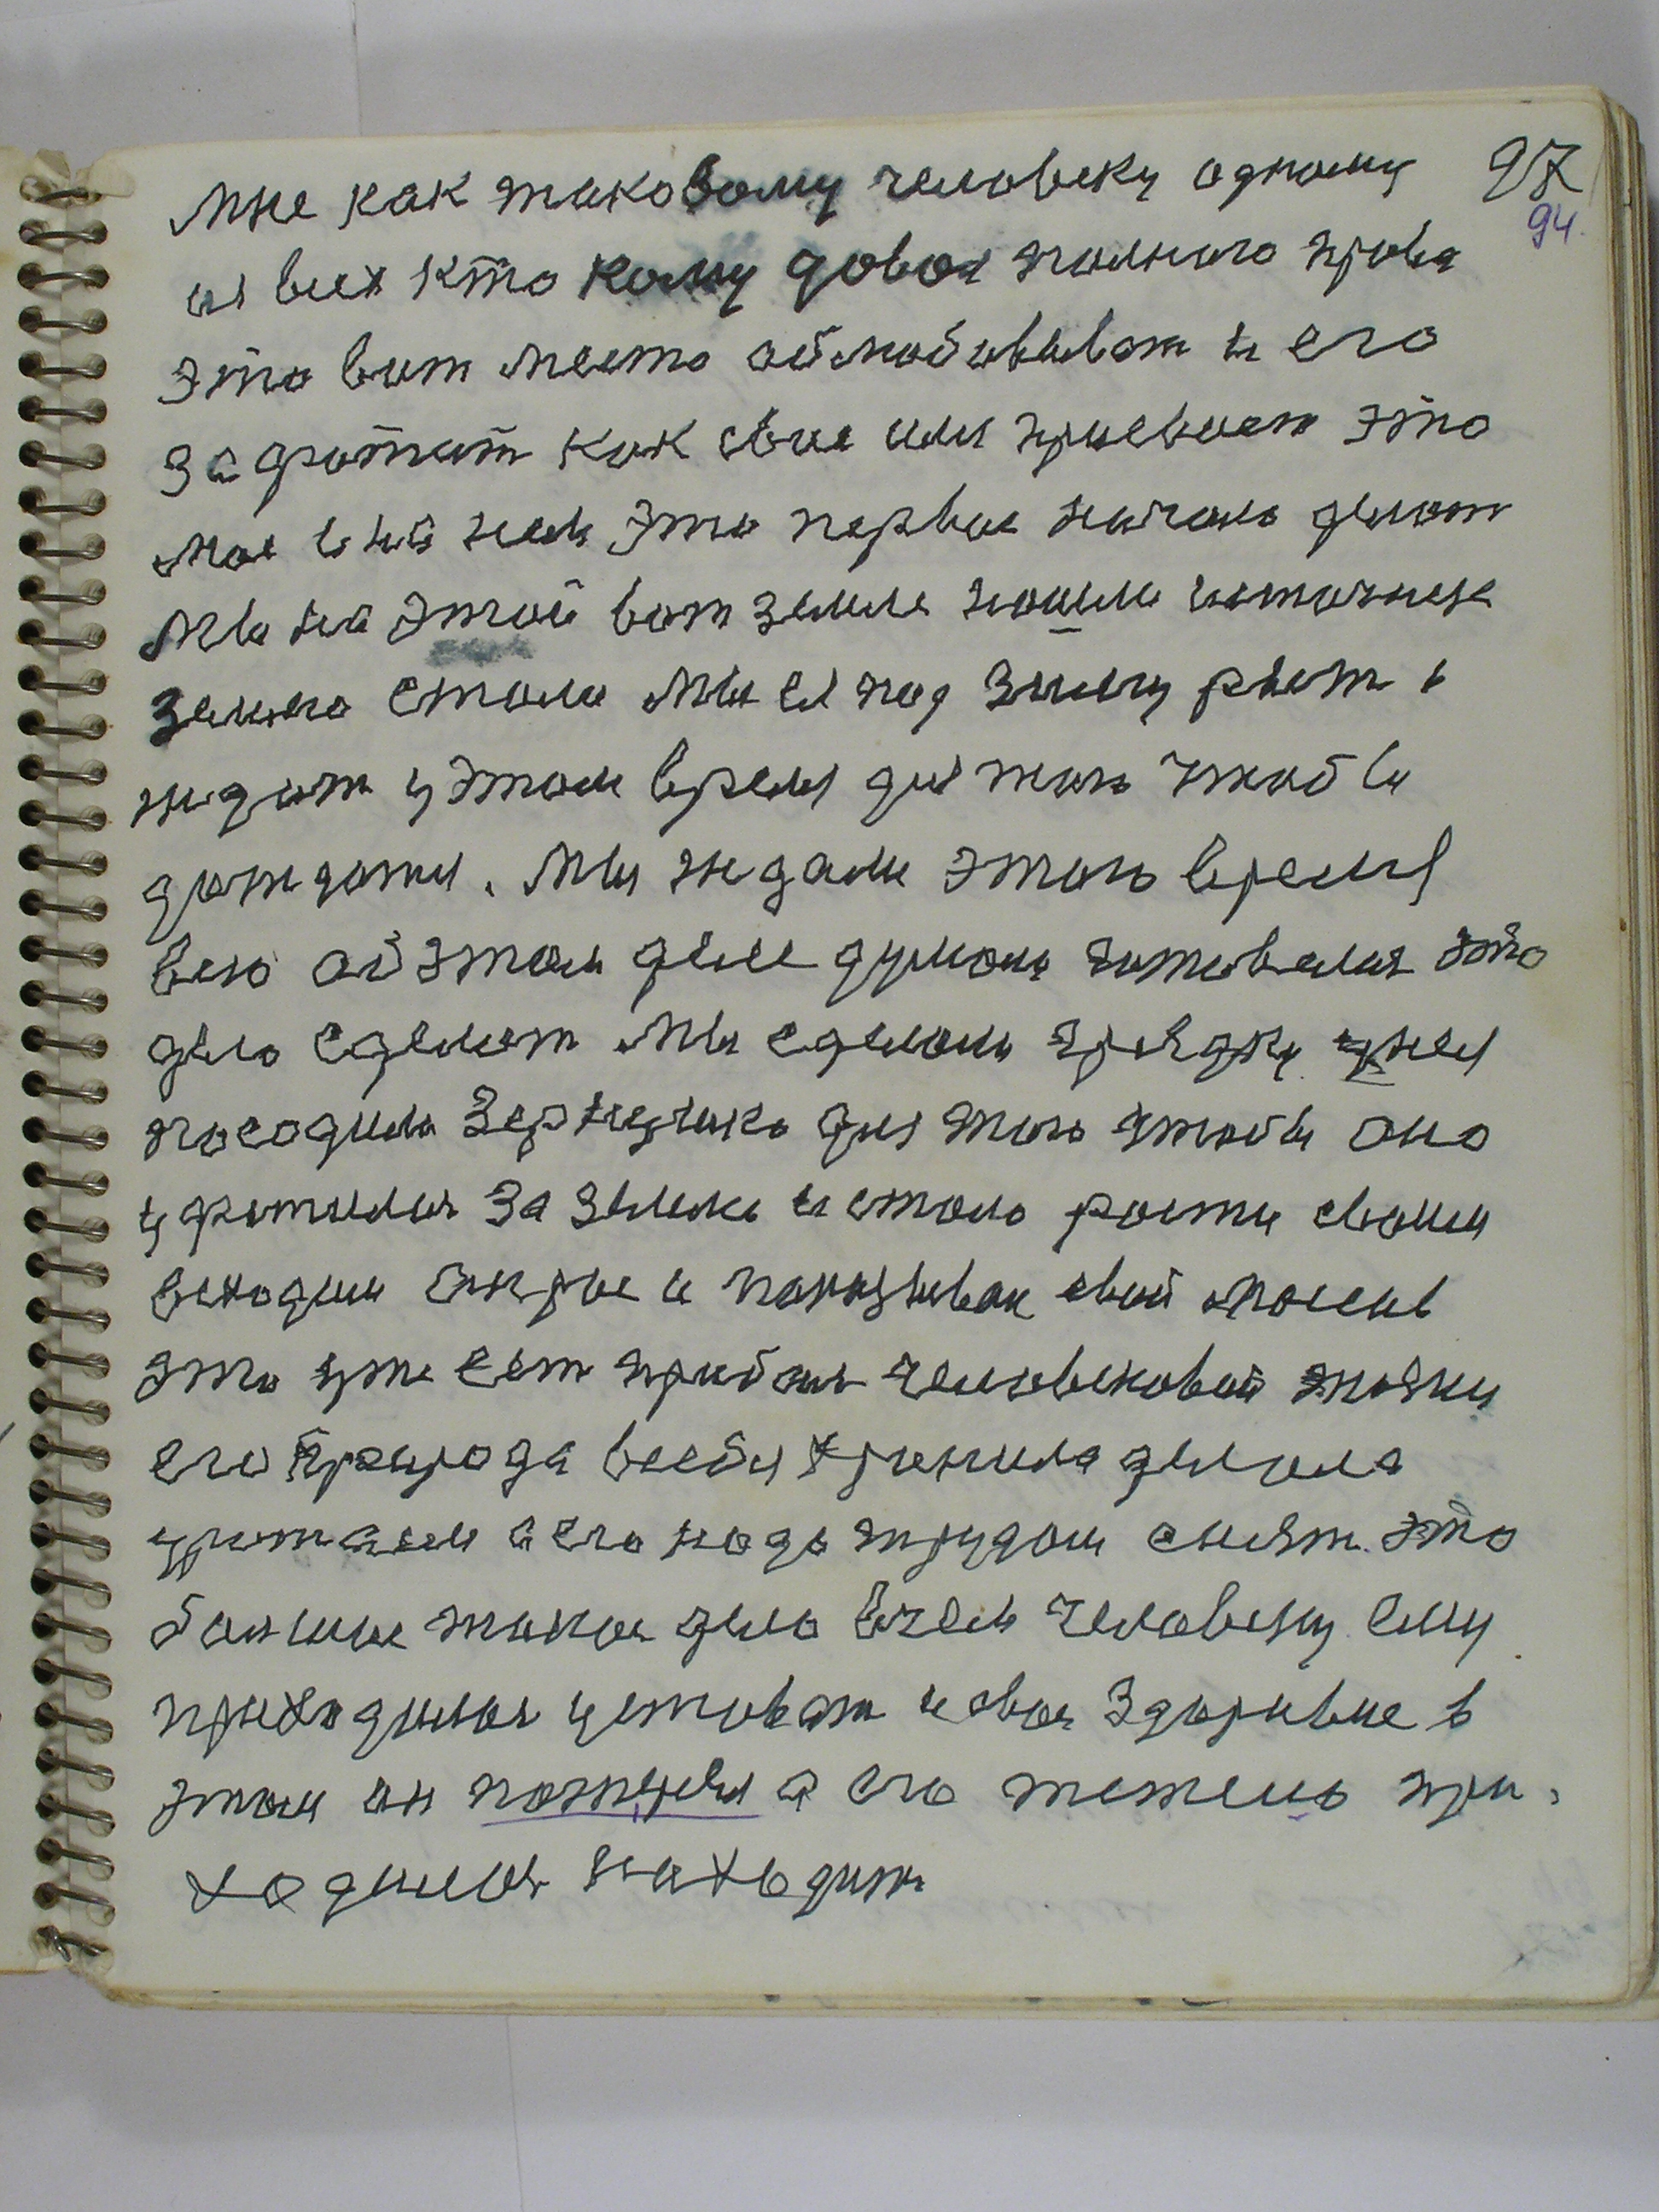 Мне как таковому человеку одному 97
94.
из всех кто кому довал полного права
это вит место облюбовыват и его
захватит как свое или присвоет это
мое в ней нем это первое начало делат
Мы на этой вот земле нашли источник
землю стали Мы ея под зиму рыт и
ждат у этом время для того чтоб ы
дождатся. Мы ждали этого время
всю об этом деле думали готовелися это
дело сделат Мы сделали грядку у нея
посадили зернушко для того чтобы оно
ухватилися за землю и стало расти своим
выходим быстрое и показывая свой массив
это уже ест прибыл человековой точки
его природа в себя хранила делала
урожаем а его надо трудом снят. это
болшие такое дело в чем человеку ему
приходился устават и свое здоровие в
этом он потерял а его тежело при-
ходился находит